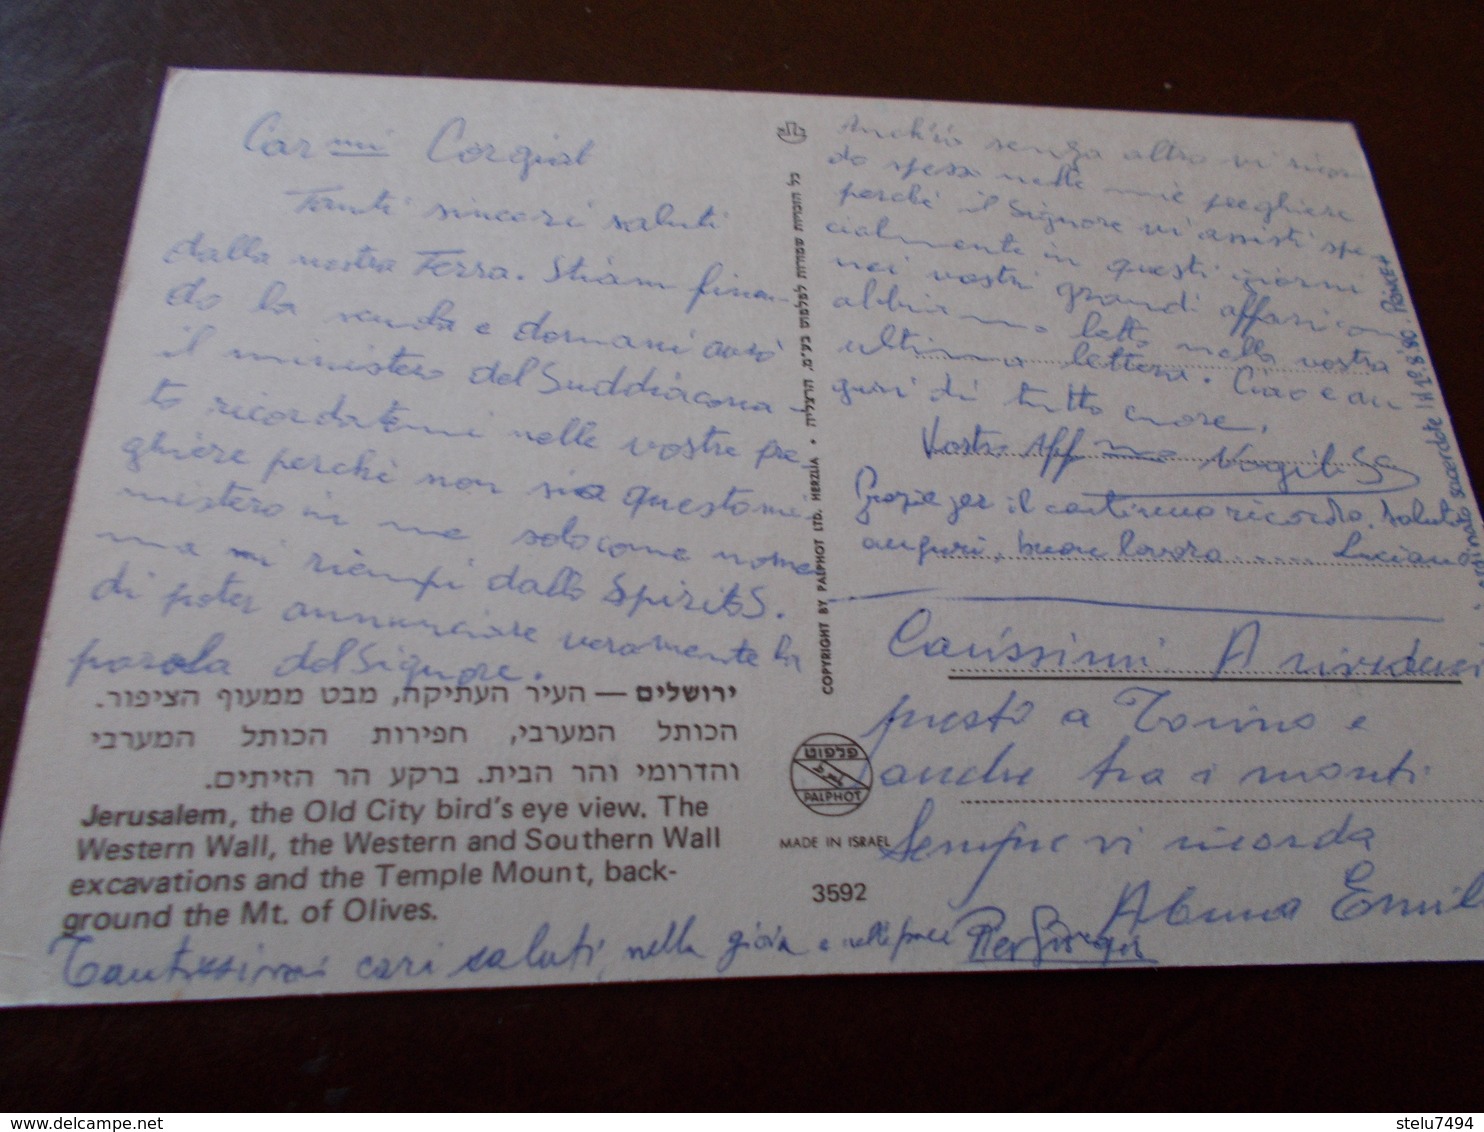 Carmi Corgiat
Tanti sinceri saluti
dalla nostra Terra. Stiam finen-
do la scuola e domani avrò
il ministero del Suddiacona-
to ricordatemi nelle vostre pre
ghiere perchè non sia questo mi
nistero in me solo come nome
ma mi riempi dallo Spirito S.
di poter annunciare veramente la
parola del Signore.
ירושלים — העיר העתיקה, מבט ממעוף הציפור.
הכותל המערבי, חפירות הכותל המערבי
והדרומי והר הבית. ברקע הר הזיתים.
Jerusalem, the Old City bird's eye view. The
Western Wall, the Western and Southern Wall
excavations and the Temple Mount, back-
ground the Mt. of Olives.
Tantissimi cari saluti nella gioia e nella pace PierGiorgio
כל הזכויות שמורות לפלפוט בע"מ, הרצליה • COPYRIGHT BY PALPHOT LTD. HERZLIA
פלפוט
PALPHOT
MADE IN ISRAEL
3592
Anch'io senza altro vi ricor
do spesso nelle mie preghiere
perchè il Signore vi assisti spe-
cialmente in questi giorni
nei vostri grandi affari come
abbiamo letto nella vostra
ultima lettera. Ciao e au
guri di tutto cuore.
Vostro Aff
Grazie per il continuo ricordo. Saluti
auguri, buon lavoro ..... Luciano
sacerdote
Carissimi Arivederci
presto a Torino e
anche tra i monti
Sempre vi ricorda
Abuna Emil
stelu7494
delcampe.net